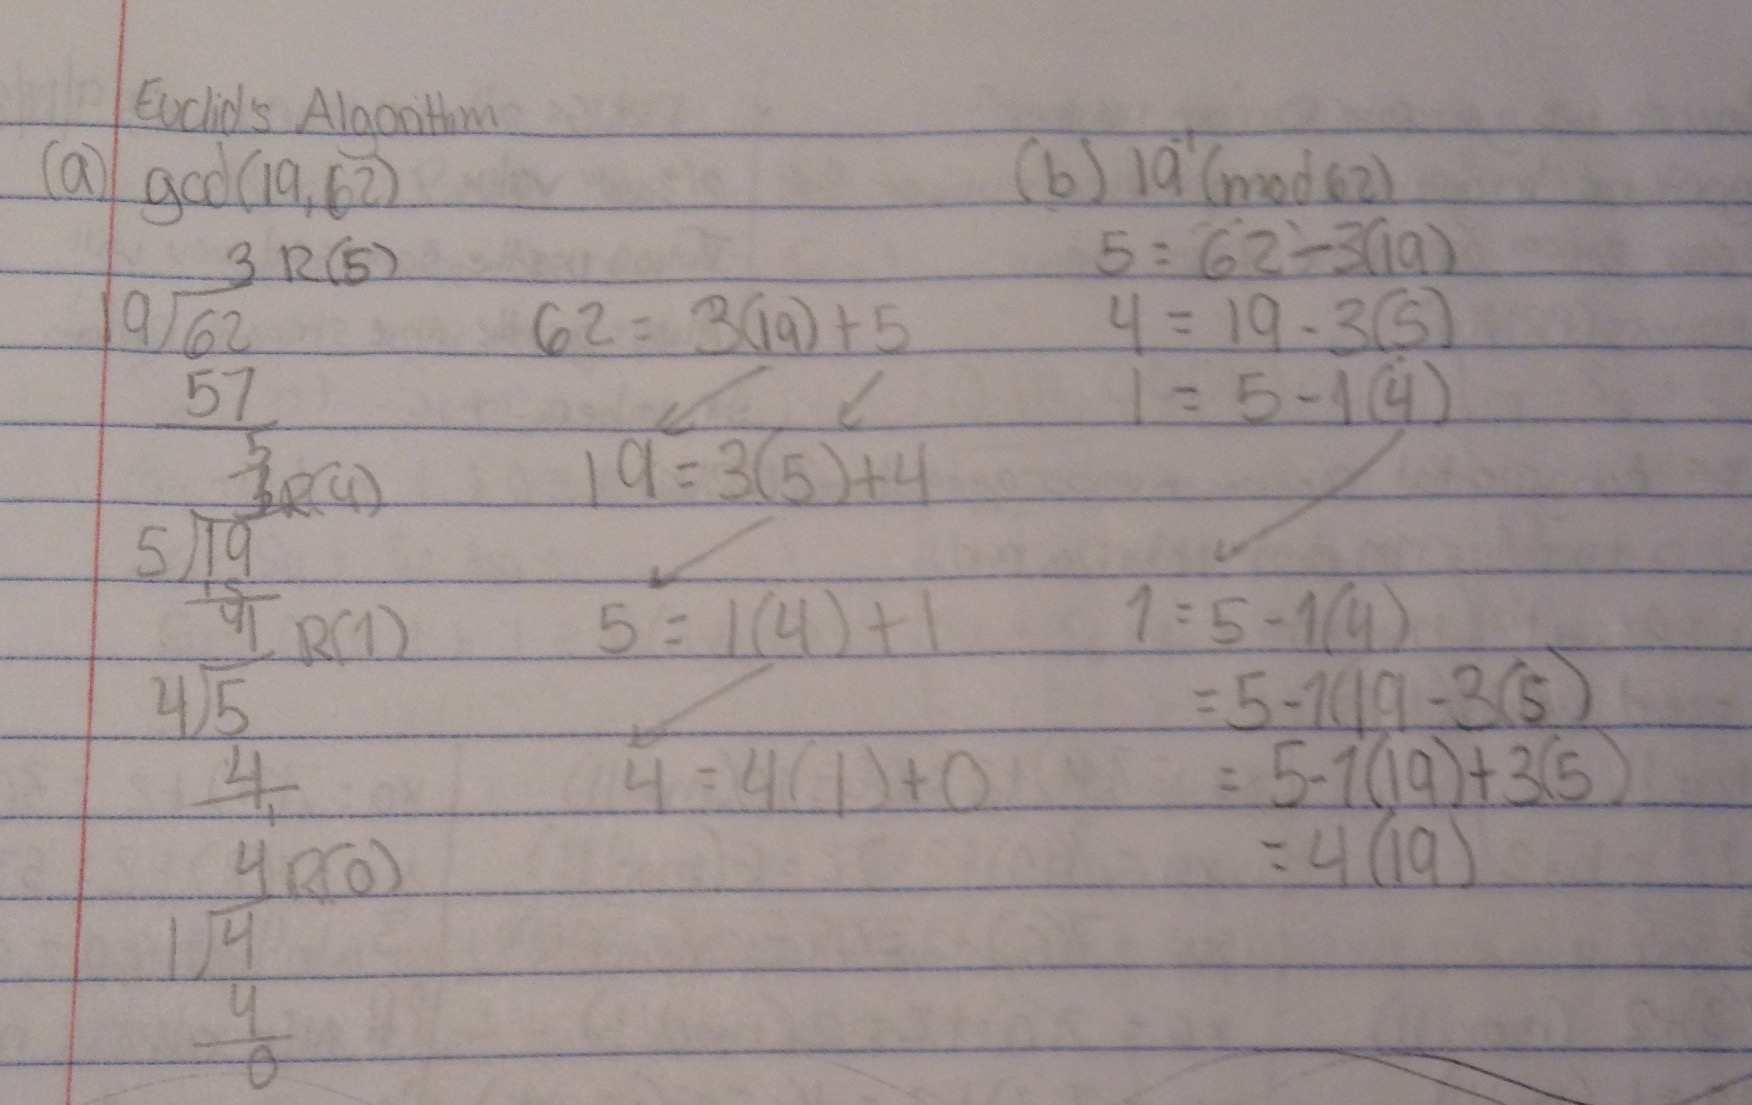 Euclid's Algorithm
(a) gcd(19,62)
3 R(5)
19)62
57
5
3 R(4)
5)19
15
4
1 R(1)
4)5
4
1
4 R(0)
1)4
4
0
62 = 3(19) + 5
19 = 3(5) + 4
5 = 1(4) + 1
4 = 4(1) + 0
(b) 19⁻¹ (mod 62)
5 = 62 - 3(19)
4 = 19 - 3(5)
1 = 5 - 1(4)
1 = 5 - 1(4)
= 5 - 1(19 - 3(5)
= 5 - 1(19) + 3(5)
= 4(19)